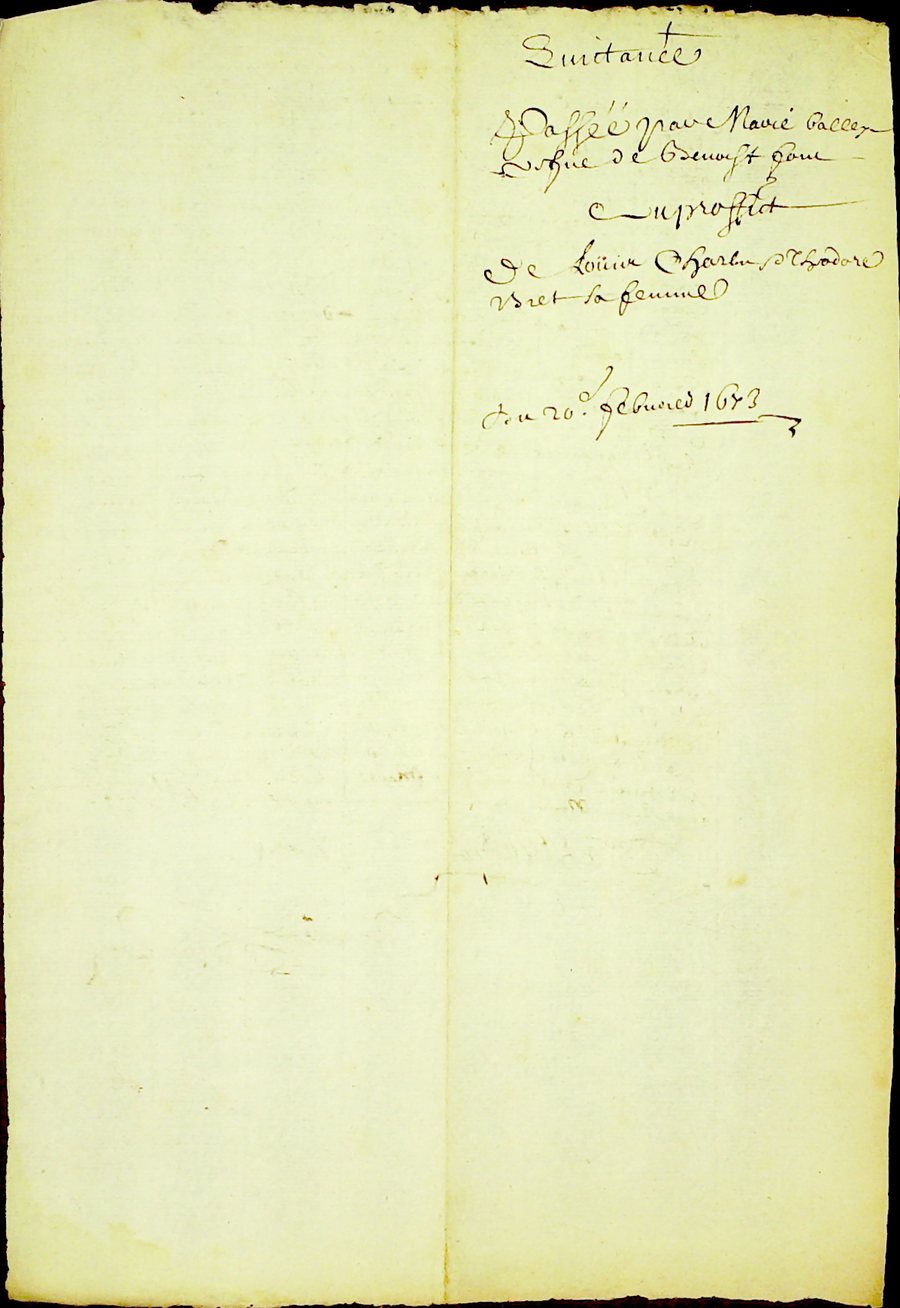 Quictancé
Passéé par Marié Ballex
vefue de Benoist fom
Au proffict
De Loüis Charles & Thodore
Bret sa femme
Du 20e. febvrier 1673